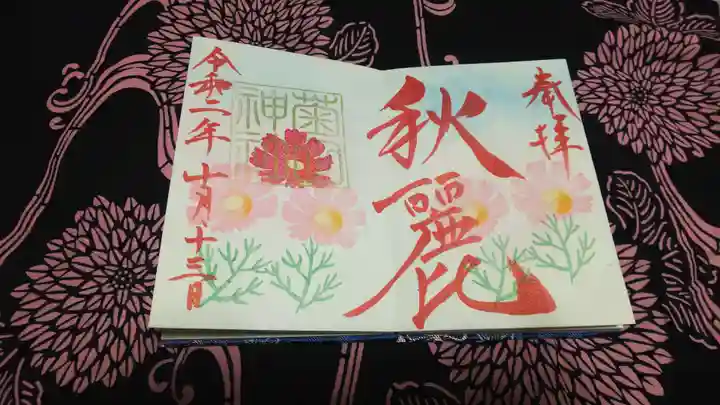 奉拝
秋麗
菊田
神社
令和二年十月十三日